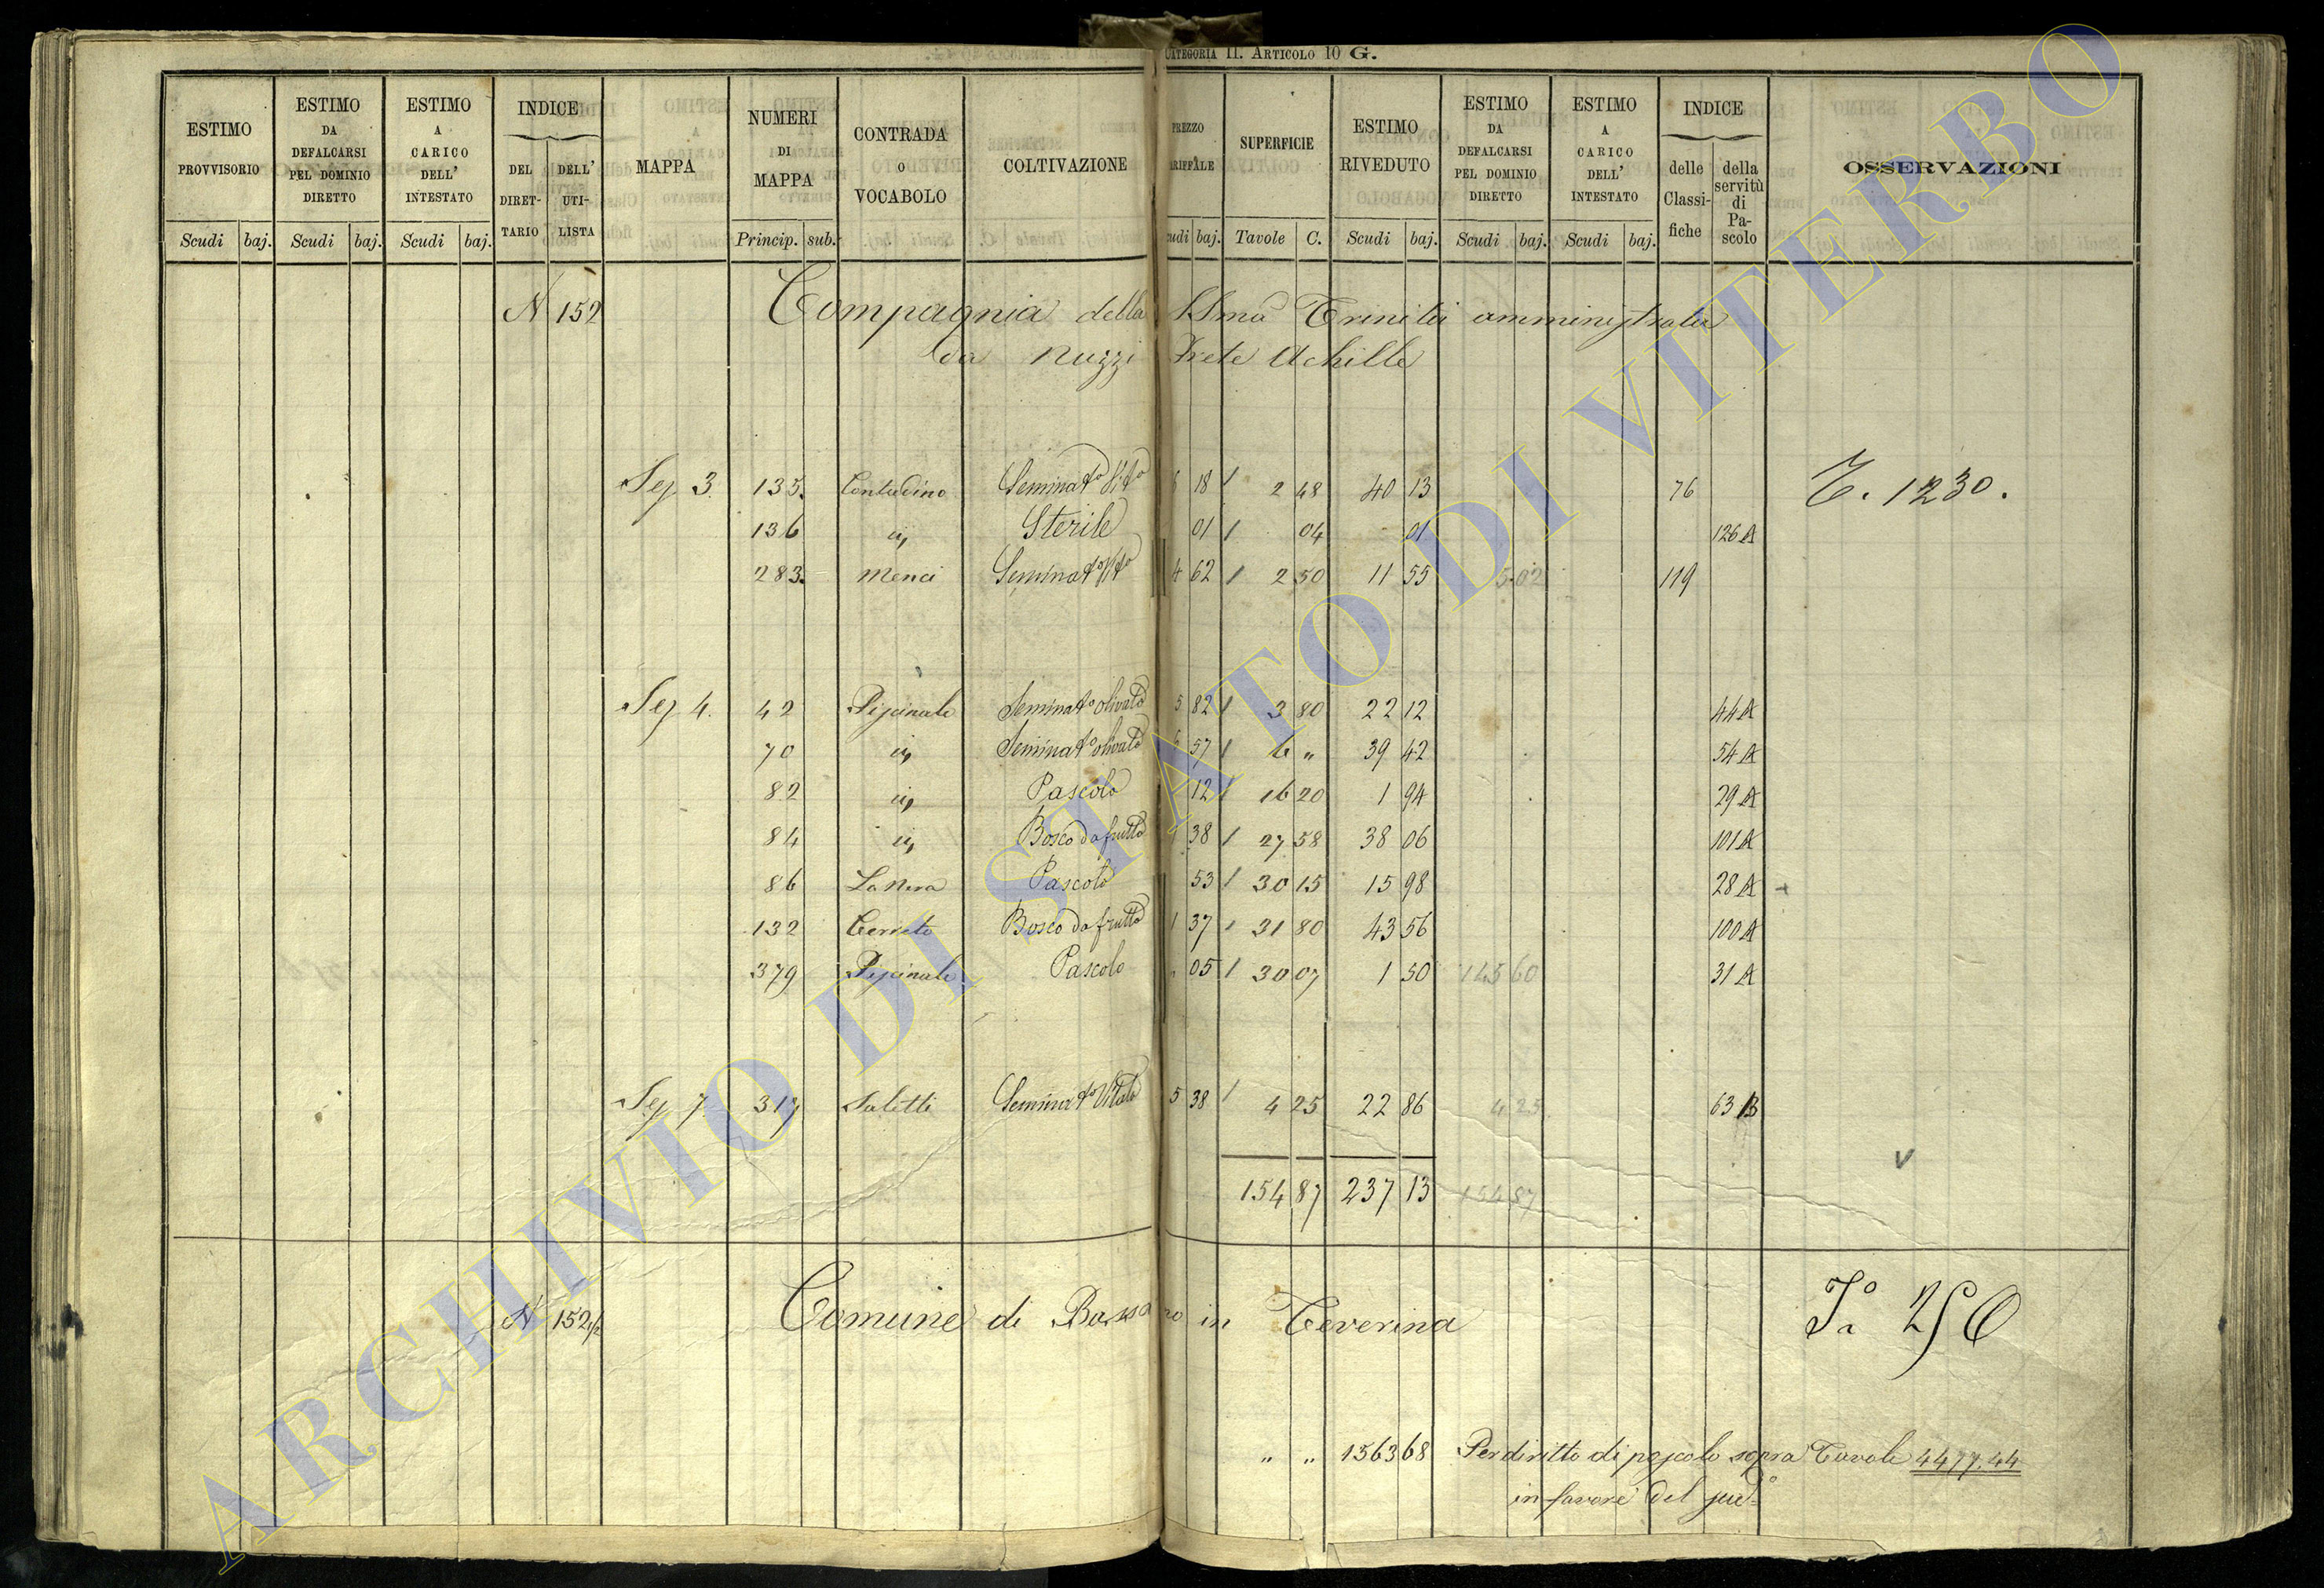 CATEGORIA II. ARTICOLO 10 G.
ESTIMO PROVVISORIO | ESTIMO DA DEFALCARSI PEL DOMINIO DIRETTO | ESTIMO A CARICO DELL' INTESTATO | INDICE DEL DIRETTARIO | DELL' UTILISTA | MAPPA | NUMERI DI MAPPA | CONTRADA O VOCABOLO | COLTIVAZIONE | PREZZO | SUPERFICIE | ESTIMO RIVEDUTO | ESTIMO DA DEFALCARSI PEL DOMINIO DIRETTO | ESTIMO A CARICO DELL' INTESTATO | INDICE delle Classifiche | della servitù di Pascolo | OSSERVAZIONI
Scudi baj. Scudi baj. Scudi baj. Princip. sub. baj. Tavole C. Scudi baj. Scudi baj. Scudi baj.
N 152 Compagnia della SSma Trinità amministrata
da Nuzzi Prete Achille
Sez 3. 135 Contadino Seminat° Vit° 18 2 48 40 13 76 T. 1230.
136 Sterile 01 04 01 126 A
283 Menci Seminat° Vit° 4 62 2 50 11 55 5 02 119
Sez 4. 42 Piscinale Seminat° olivato 5 82 3 80 22 12 44 A
70 Seminat° olivato 6 57 6 „ 39 42 54 A
82 Pascolo 12 16 20 1 94 29 A
84 Bosco da frutto 38 27 58 38 06 101 A
86 La Nera Pascolo 53 30 15 15 98 28 A
132 Cerreto Bosco da frutto 1 37 31 80 43 56 100 A
379 Piscinale Pascolo „ 05 30 07 1 50 145 60 31 A
Sez 7 317 Saletti Seminat° Vitato 5 38 4 25 22 86 4 25 63 B
154 87 237 13 154 87
N 152 1/2 Comune di Bassano in Teverina
„ „ 1563 68 Per diritto di pascolo sopra Tavole 4477.44
in favore del